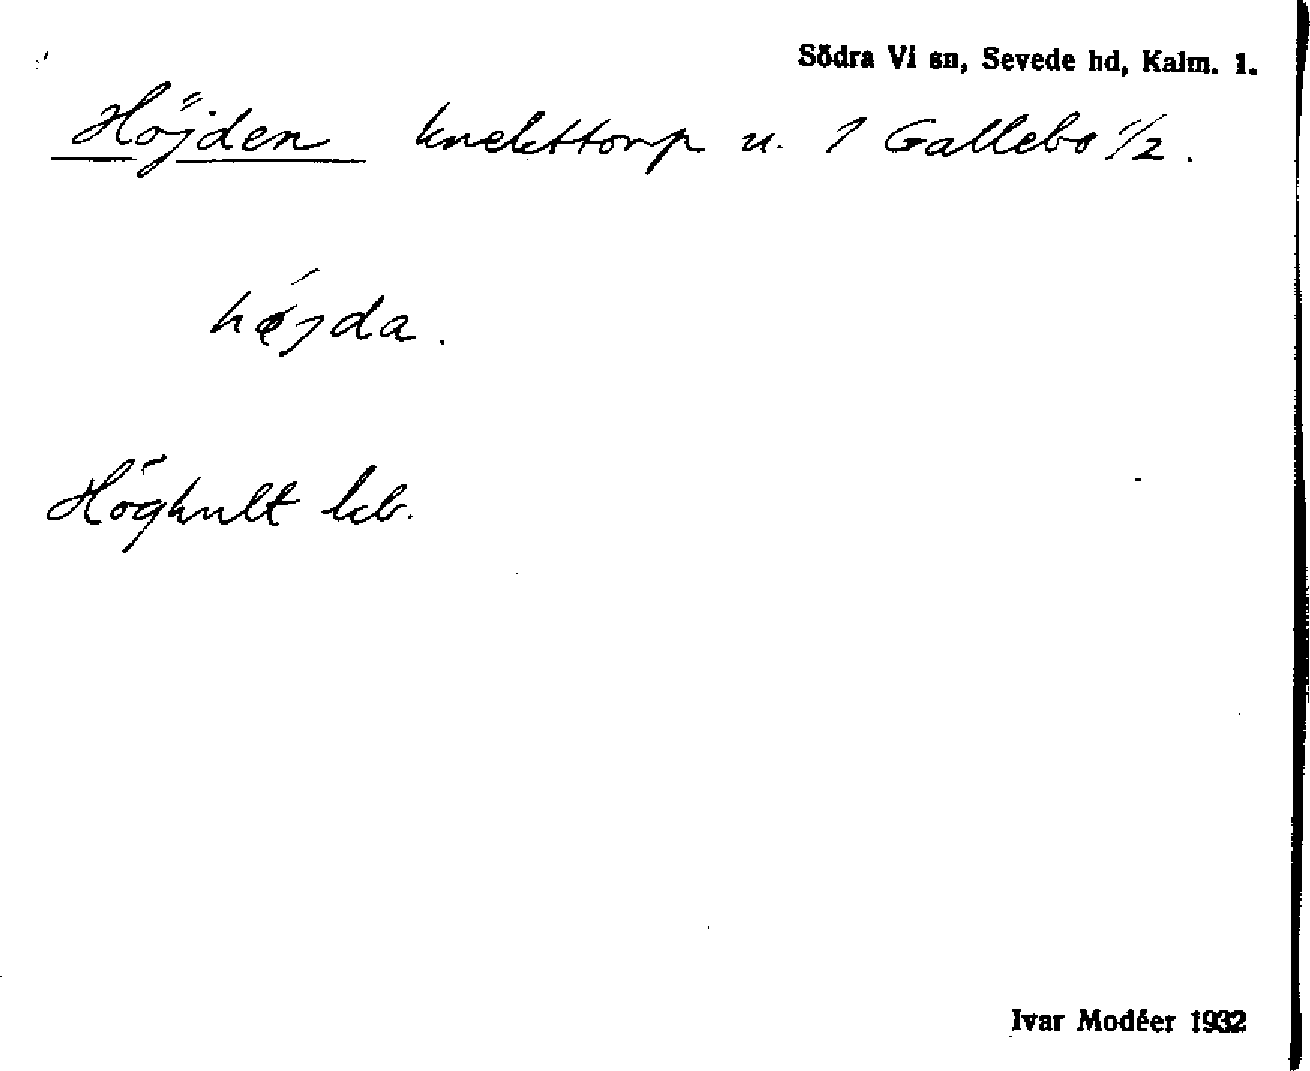 Södra Vi sn, Sevede hd, Kalm. l.
Höjden knekttorp u. 1 Gallebo 1/2.
hǿjda.
Höghult kb.
Ivar Modéer 1932